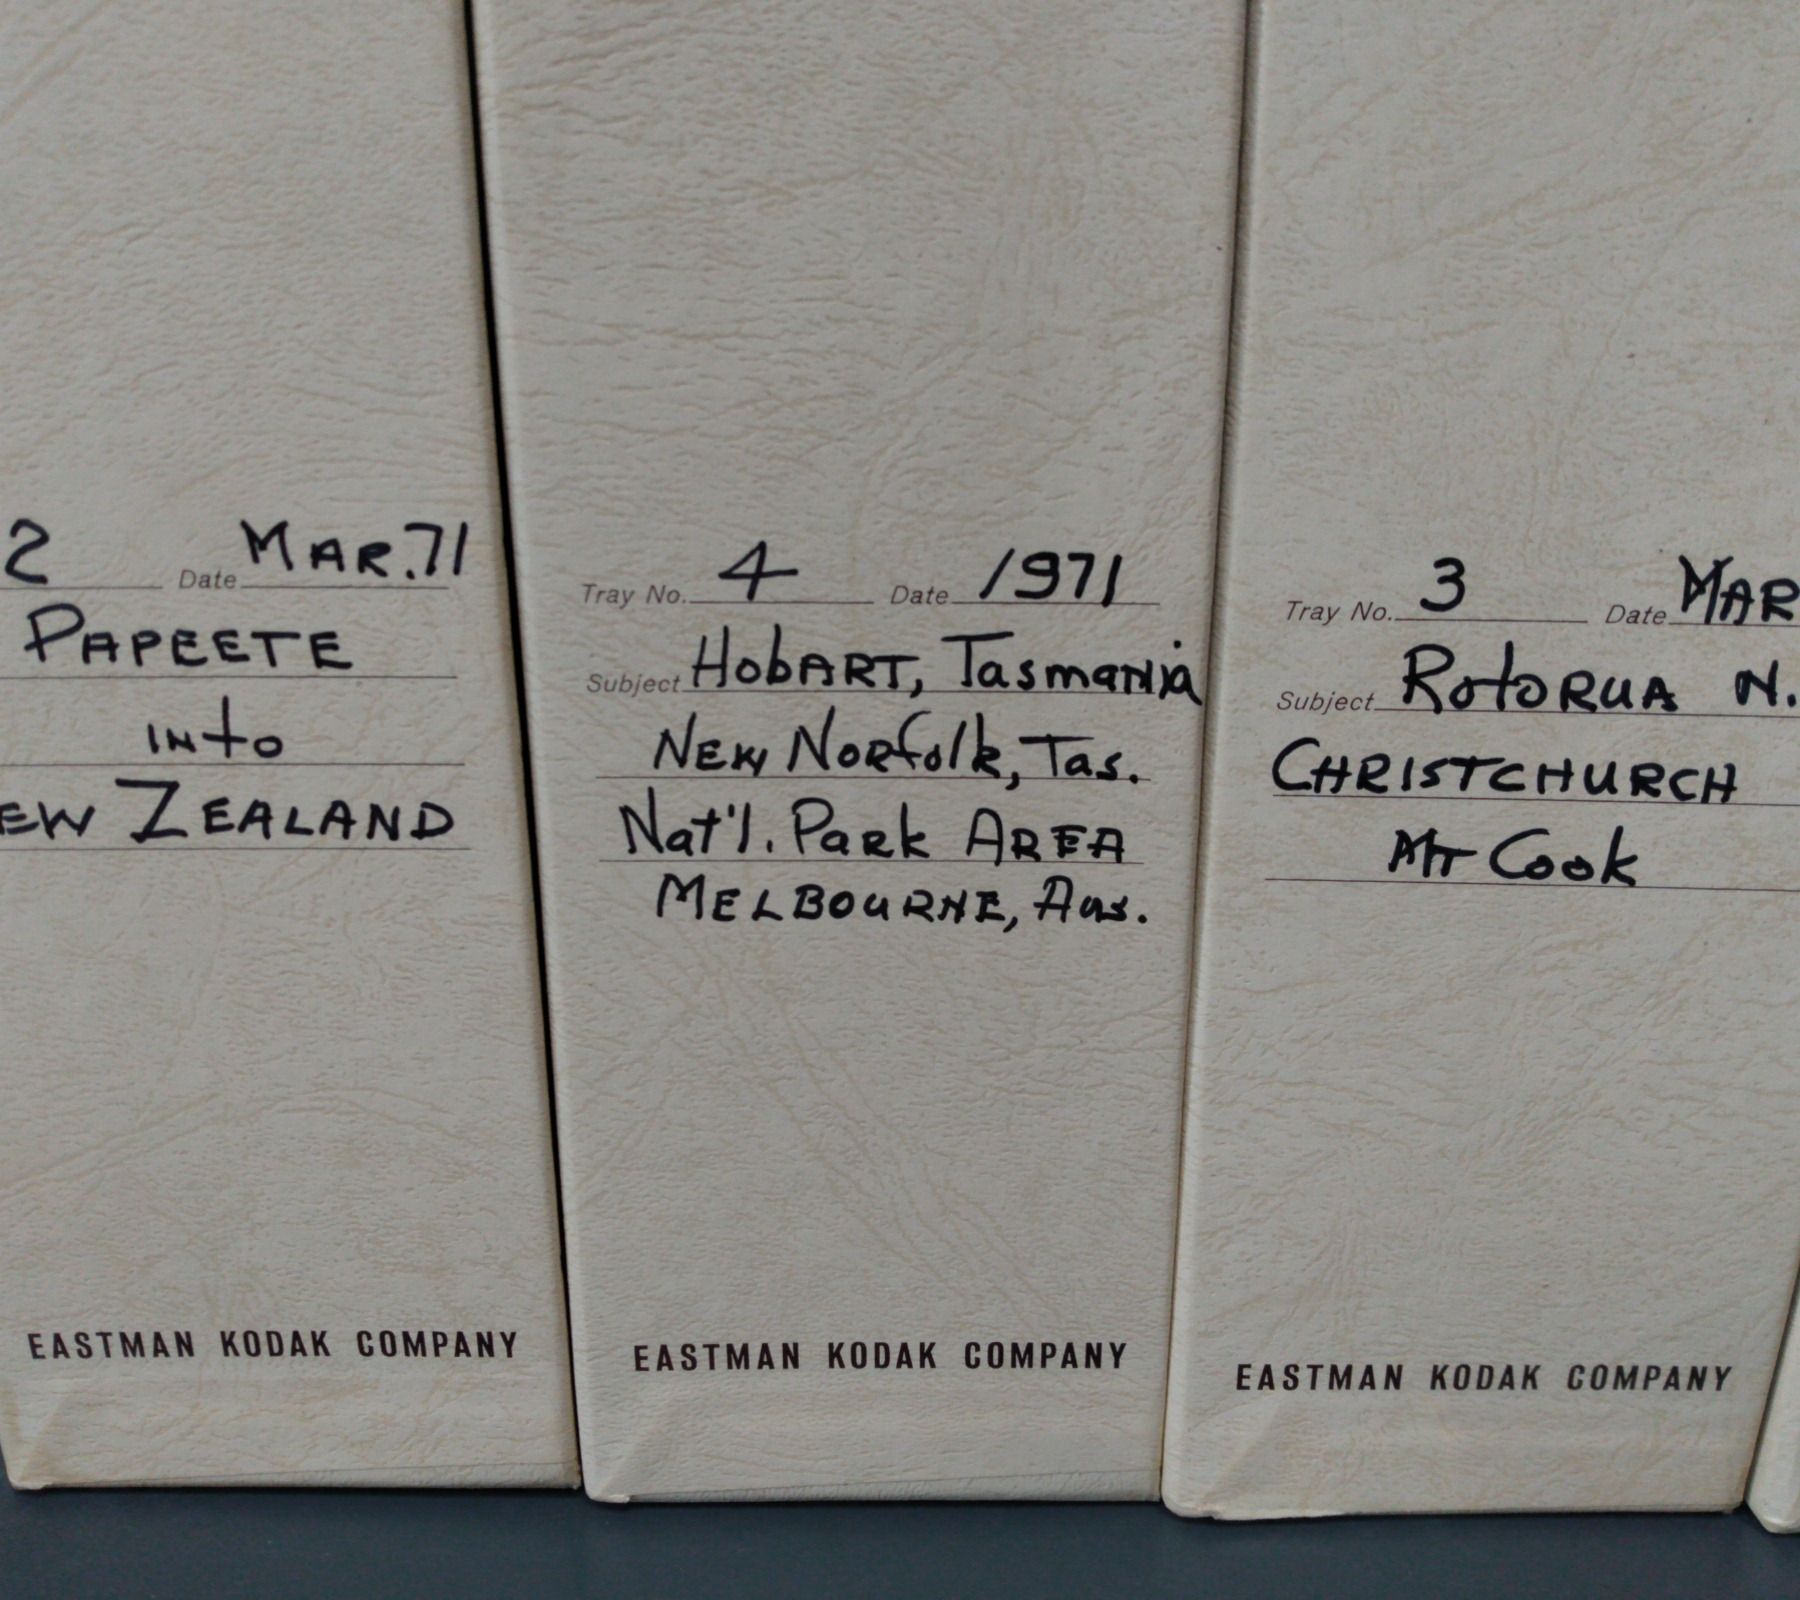 2 Date MAR.71
PAPEETE
into
EW ZEALAND
EASTMAN KODAK COMPANY
Tray No. 4 Date 1971
Subject HobART, Tasmania
NEW NORfolk, Tas.
Nat'l. Park AREA
MELBOURNE, Aus.
EASTMAN KODAK COMPANY
Tray No. 3 Date MAR
Subject RotoRUA N.
CHRISTCHURCH
MT Cook
EASTMAN KODAK COMPANY